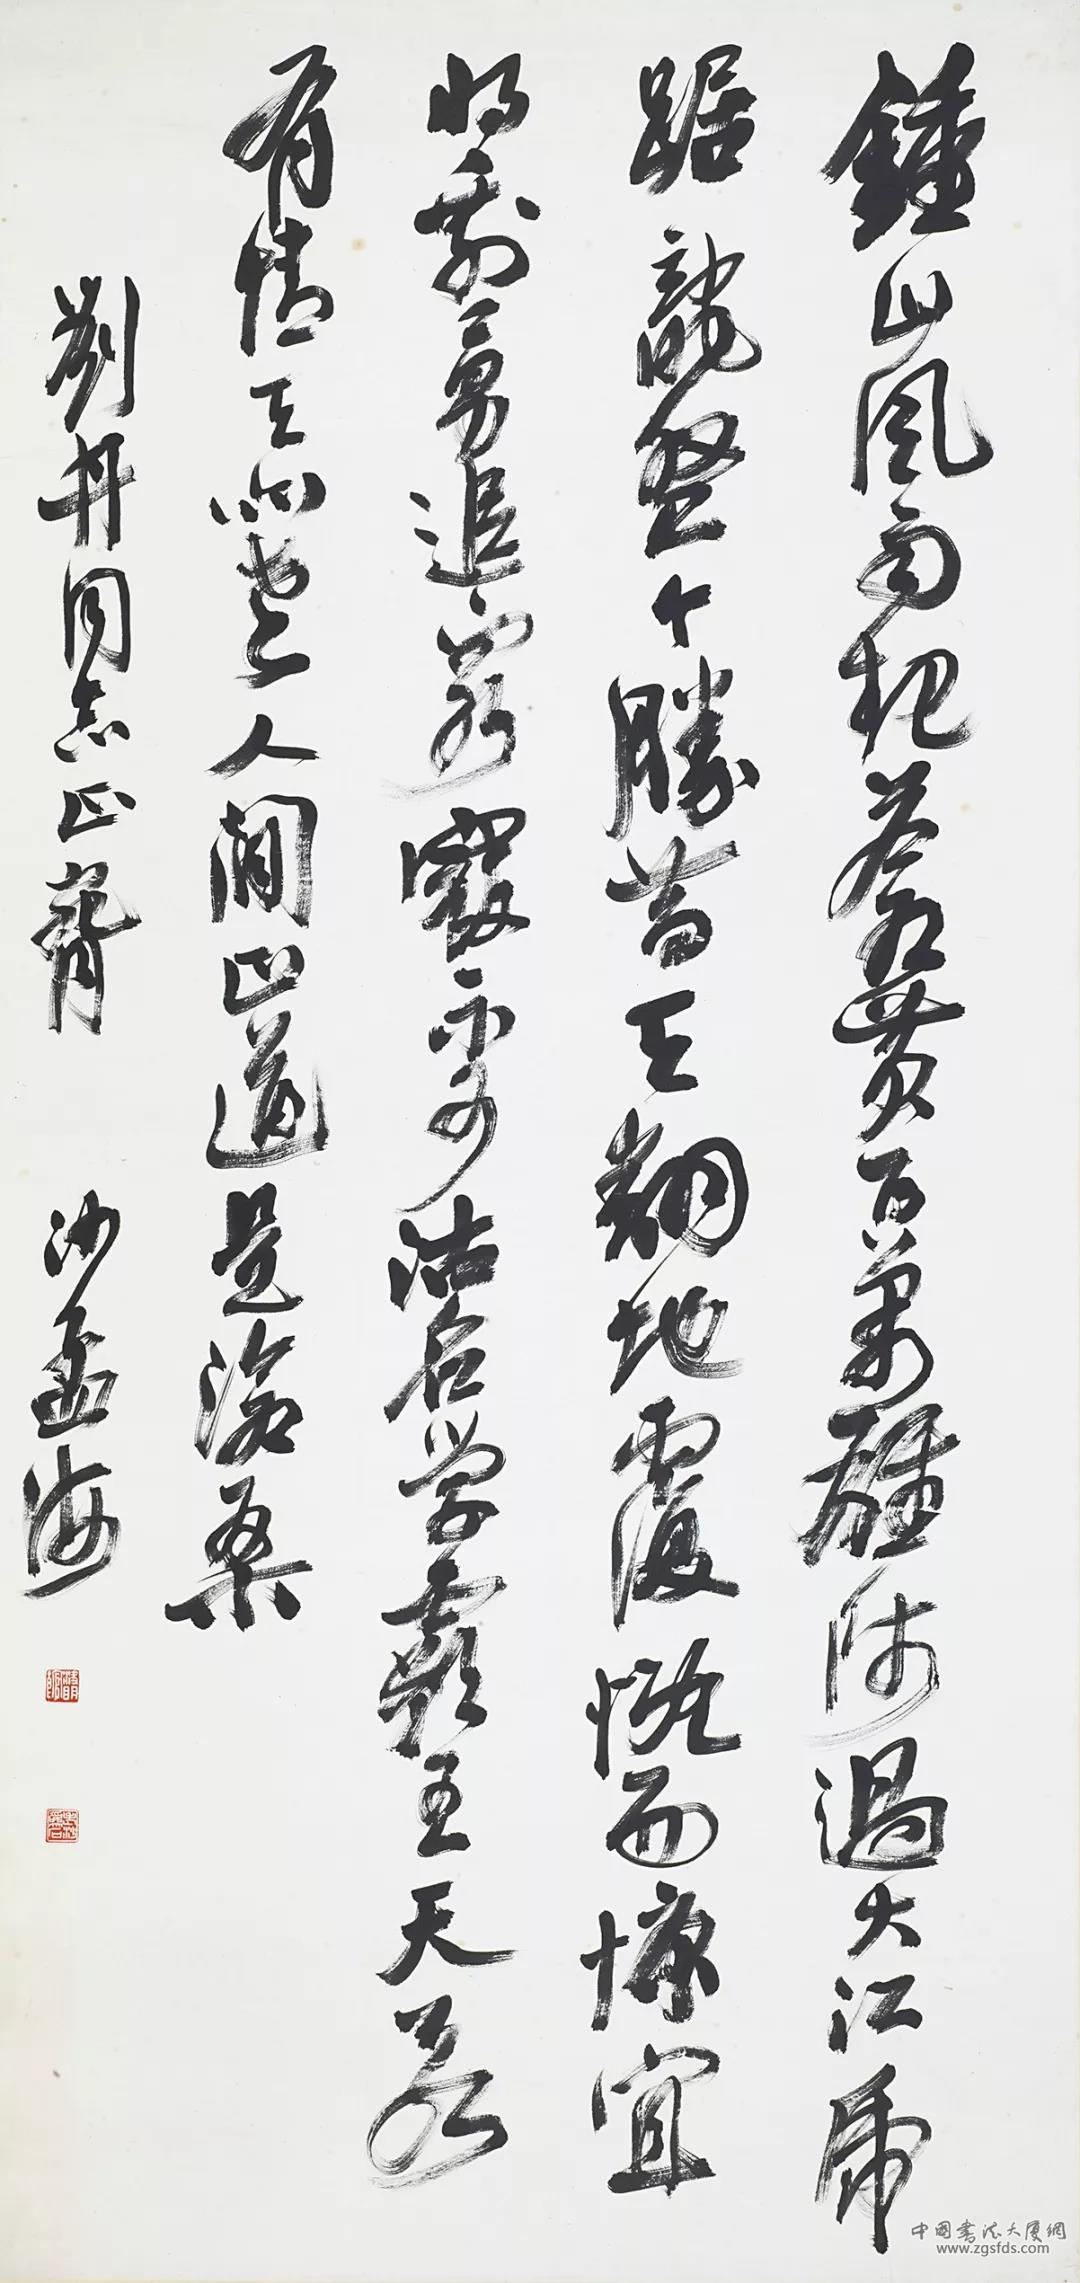 鍾山風雨起蒼黃百萬雄師過大江虎
踞龍盤今勝昔天翻地覆慨而慷宜
將剩勇追窮寇不可沽名学霸王天若
有情天亦老人間正道是滄桑
劉丹同志正臂 沙孟海
中國書法大廈網
www.zgsfds.com